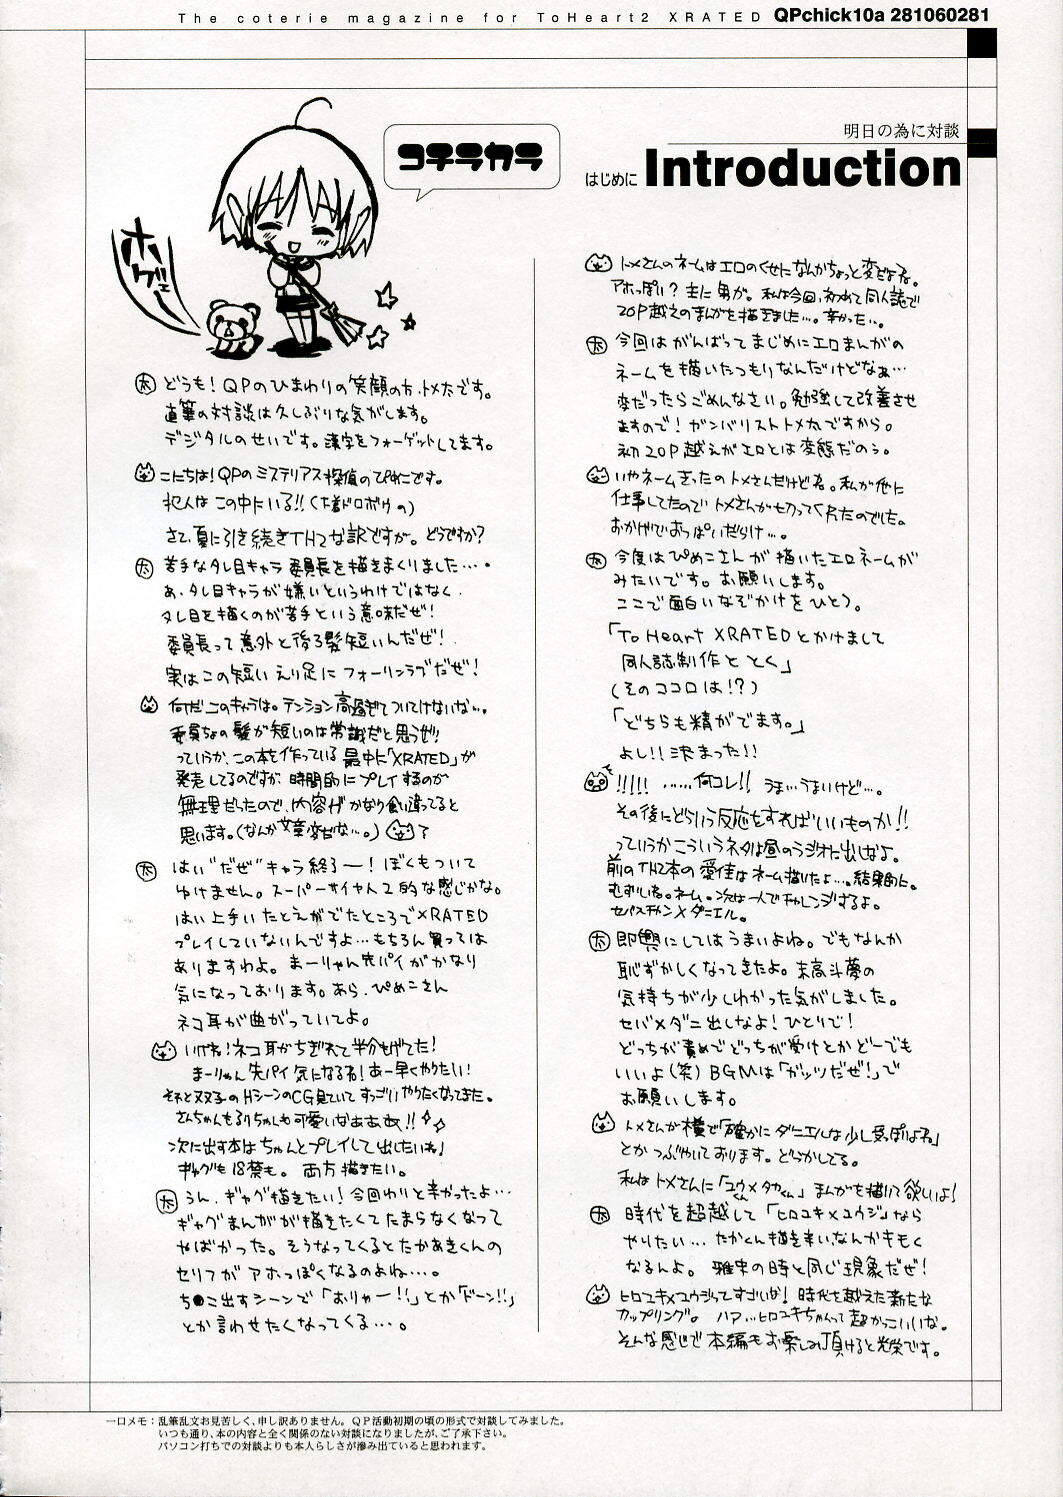 The coterie magazine for ToHeart2 XRATED QPchick10a 281060281
明日の為に対談
はじめに Introduction
コチラカラ
ホゲェー
太 どうも!QPのひまわりの笑顔の方、トメ太です。
直筆の対談は久しぶりな気がします。
デジタルのせいです。漢字をフォーゲットしてます。
こにちは!QPのミステリアス探偵のぴめこです。
犯人はこの中にいる!!(下着ドロボウの)
さて、夏に引き続きTH2な訳ですが。どうですか?
太 苦手なタレ目キャラ委員長を描きまくりました…。
あ、タレ目キャラが嫌いというわけではなく、
タレ目を描くのが苦手という意味だぜ!
委員長って意外と後ろ髪短いんだぜ!
実はこの短いえり足にフォーリンラブだぜ!
何だこのキャラは。テンション高過ぎてついてけないな…。
委員ちょの髪が短いのは常識だと思うぜ!!
っていうか、この本を作っている最中に「XRATED」が
発売してるのですが、時間的にプレイするのが
無理だったので、内容がかなり食い違ってると
思います。(なんか文章変だな…。)
太 はい"だぜ"キャラ終了ー!ぼくもついて
ゆけません。スーパーサイヤ人2的な感じかな。
はい上手いたとえがでたところでXRATED
プレイしていないんですよ…もちろん買っては
ありますわよ。まーりゃん先パイがかなり
気になっております。あら、ぴめこさん
ネコ耳が曲がっていてよ。
いけね!ネコ耳がちぎれて半分もげてた!
まーりゃん先パイ気になるね!あー早くやりたい!
それと双子のHシーンのCG見ていてすっごいやりたくなってきた。
さんちゃんもるりちゃんも可愛いなぁぁぁぁ!!
次に出す本はちゃんとプレイして出したいね!
ギャグも18禁も。両方描きたい。
太 うん、ギャグ描きたい!今回わりと辛かったよ…
ギャグまんがが描きたくてたまらなくなって
やばかった。そうなってくるとたかあきくんの
セリフがアホっぽくなるのよね…。
ち●こ出すシーンで「おりゃー!!」とか「ドーン!!」
とか言わせたくなってくる…。
トメさんのネームはエロのくせになんかちょっと変だよね。
アホっぽい?主に男が。私は今回、初めて同人誌で
20P越えのまんがを描きました…。辛かった…。
太 今回はがんばってまじめにエロまんがの
ネームを描いたつもりなんだけどなぁ…
変だったらごめんなさい。勉強して改善させ
ますので!ガンバリストトメ太ですから。
初20P越えがエロとは変態だのぅ。
いやネームきったのトメさんだけどね。私が他に
仕事してたのでトメさんが切ってくれたのでした。
おかげでおっぱいだらけ…。
太 今度はぴめこさんが描いたエロネームが
みたいです。お願いします。
ここで面白いなぞかけをひとつ。
「To Heart XRATEDとかけまして
同人誌制作ととく」
(そのココロは!?)
「どちらも精がでます。」
よし!!決まった!!
!!!!! ……何コレ!! うま…うまいけど…。
その後にどういう反応をすればいいものか!!
っていうかこういうネタは昼のラジオに出しなよ。
前のTH2本の愛佳はネーム描いたよ…。結果的に。
むずいね。ネーム。次は一人でチャレンジするよ。
セバスチャン×ダニエル。
太 即興にしてはうまいよね。でもなんか
恥ずかしくなってきたよ。末高斗夢の
気持ちが少しわかった気がしました。
セバ×ダニ出しなよ!ひとりで!
どっちが責めでどっちが受けとかどーでも
いいよ(笑)BGMは「ガッツだぜ!」で
お願いします。
トメさんが横で「確かにダニエルは少し受っぽいよね」
とかつぶやいております。どうかしてる。
私はトメさんに「ユウくん×タカくん」まんがを描いて欲しいよ!
太 時代を超越して「ヒロユキ×ユウジ」なら
やりたい…たかくん描き辛い、なんかキモく
なるんよ。雅史の時と同じ現象だぜ!
ヒロユキ×ユウジってすごいな!時代を越えた新たな
カップリング。ハァ…ヒロユキちゃんって超かっこいいな。
そんな感じで本編もお楽しみ頂けると光栄です。
一口メモ:乱筆乱文お見苦しく、申し訳ありません。QP活動初期の頃の形式で対談してみました。
いつも通り、本の内容と全く関係のない対談になりましたが、ご了承下さい。
パソコン打ちでの対談よりも本人らしさが滲み出ていると思われます。